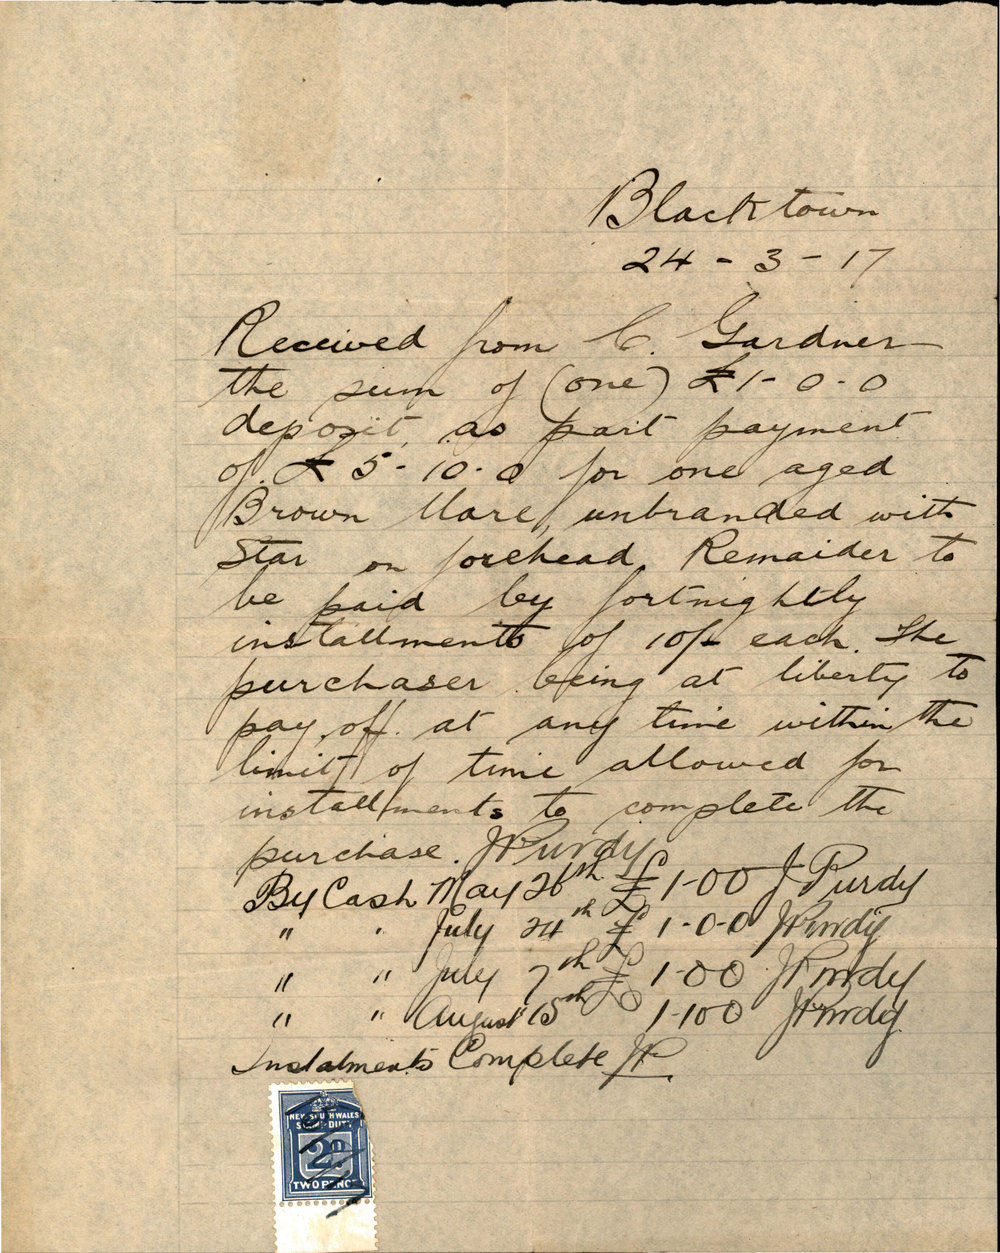 Blacktown
24 - 3 - 17
Received from C. Gardner
the sum of (one) £1-0-0
deposit, as part payment
of £5-10-0 for one aged
Brown Mare, unbranded with
Star on forehead. Remaider to
be paid by fortnightly
installments of 10/- each. The
purchaser being at liberty to
pay off at any time within the
limit of time allowed for
installments to complete the
purchase. J Purdy
By Cash May 26th £1-00 J Purdy
" " July 24th £1-0-0 J Purdy
" " July 7th £1-00 J Purdy
" " August 15th 1-100 J Purdy
Instalments Complete JP
NEW SOUTH WALES
STAMP DUTY
2D
TWO PENCE